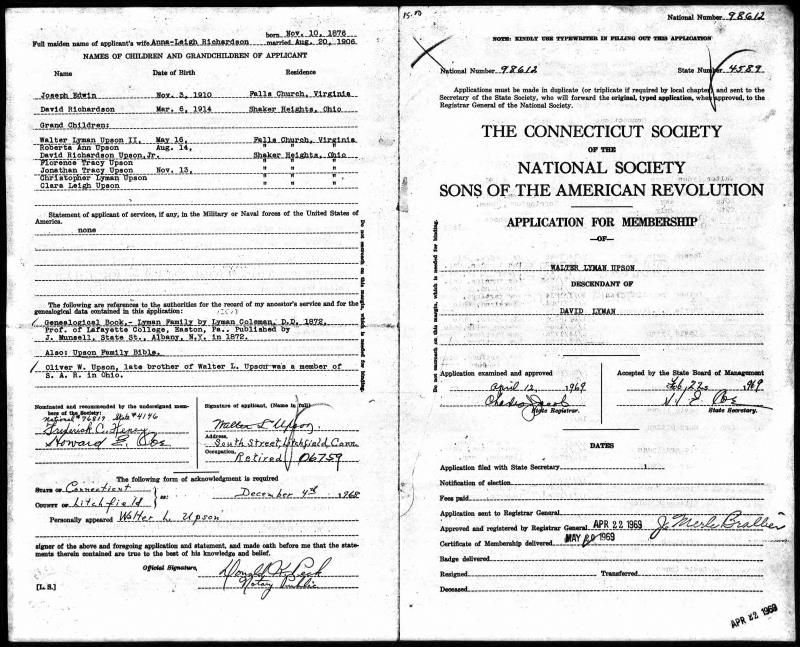 Full maiden name of applicant's wife Anna-Leigh Richardson born Nov. 10, 1876 married Aug. 20, 1906
NAMES OF CHILDREN AND GRANDCHILDREN OF APPLICANT
Name Date of Birth Residence
Joseph Edwin Nov. 3, 1910 Falls Church, Virginia
David Richardson Mar. 6, 1914 Shaker Heights, Ohio
Grand Children:
Walter Lyman Upson II. May 16, Falls Church, Virginia
Roberta Ann Upson Aug. 14, " " "
David Richardson Upson,Jr. Shaker Heights, Ohio
Florence Tracy Upson " " "
Jonathan Tracy Upson Nov. 13, " " "
Christopher Lyman Upson " " "
Clara Leigh Upson " " "
Statement of applicant of services, if any, in the Military or Naval forces of the United States of
America.
none
The following are references to the authorities for the record of my ancestor's service and for the
genealogical data contained in this application:
Genealogical Book,- Lyman Family by Lyman Coleman, D.D. 1872,
Prof. of Lafayette College, Easton, Pa.. Published by
J. Munsell, State St., Albany, N.Y. in 1872.
Also: Upson Family Bible.
Oliver W. Upson, late brother of Walter L. Upson was a member of
S. A. R. in Ohio.
Do not encroach on this margin, which is needed for binding.
Nominated and recommended by the undersigned members of the Society:
National #76819 State #4146
Howard E. Coe
Signature of applicant, (Name in full)
Walter L. Upson
Address,
South Street, Litchfield, Conn.
Occupation,
Retired 06759
The following form of acknowledgment is required
STATE OF Connecticut
COUNTY OF Litchfield
ss: December 4th 1968
Personally appeared Walter L. Upson
signer of the above and foregoing application and statement, and made oath before me that the statements therein contained are true to the best of his knowledge and belief.
Official Signature, Donald K. Peck
Notary Public
[L. S.]
15.00
National Number 98612
NOTE: KINDLY USE TYPEWRITER IN FILLING OUT THIS APPLICATION
National Number 98612 State Number 4589
Applications must be made in duplicate (or triplicate if required by local chapter) and sent to the
Secretary of the State Society, who will forward the original, typed application, when approved, to the
Registrar General of the National Society.
THE CONNECTICUT SOCIETY
OF THE
NATIONAL SOCIETY
SONS OF THE AMERICAN REVOLUTION
APPLICATION FOR MEMBERSHIP
—OF—
WALTER LYMAN UPSON
DESCENDANT OF
DAVID LYMAN
Do not encroach on this margin, which is needed for binding.
Application examined and approved
April 12, 1969
State Registrar.
Accepted by the State Board of Management
Feb. 22, 1969
H E Coe
State Secretary.
DATES
Application filed with State Secretary
Notification of election
Fees paid
Application sent to Registrar General
Approved and registered by Registrar General APR 22 1969 J. Merle Brallier
Certificate of Membership delivered MAY 20 1969
Badge delivered
Resigned Transferred
Deceased
APR 22 1969